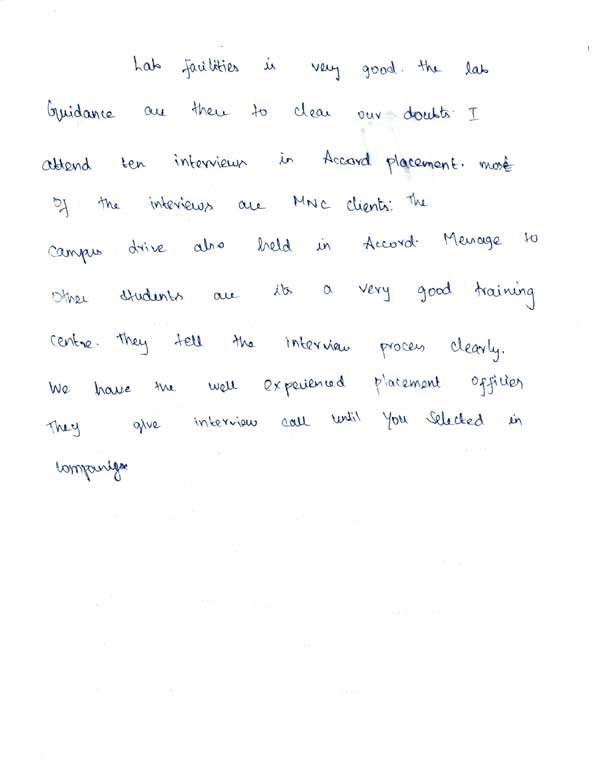 Lab facilities is very good. the lab
Guidance are there to clear our doubts. I
attend ten interviews in Accord placement. most
of the interviews are MNC clients. The
campus drive also held in Accord. Message to
other students are its a very good training
centre. They tell the interview process clearly.
We have the well experienced placement officer
They give interview call until you selected in
companies